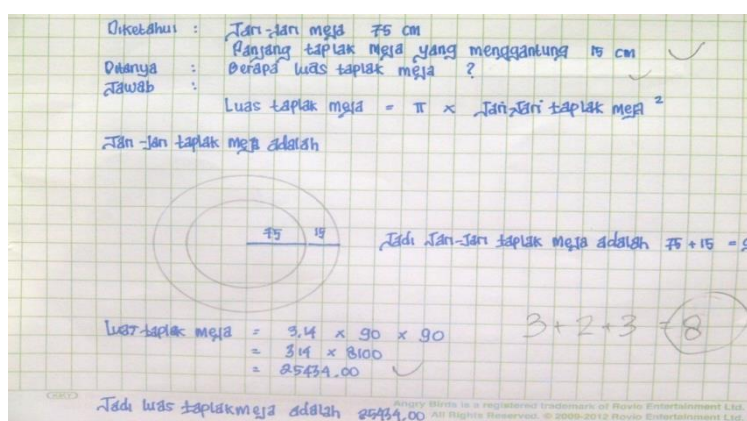 Diketahui : Jari-Jari meja 75 cm
Panjang taplak meja yang menggantung 15 cm
Ditanya : Berapa luas taplak meja ?
Jawab :
Luas taplak meja = π × Jari-Jari taplak meja ²
Jari-jari taplak meja adalah
75 15
Jadi Jari-Jari taplak meja adalah 75 + 15 =
Luas taplak meja = 3,14 × 90 × 90
= 314 × 8100
= 25434.00
3 + 2 + 3 = 8
Jadi luas taplakmeja adalah 25434,00
Angry Birds is a registered trademark of Rovio Entertainment Ltd.
All Rights Reserved. © 2009-2012 Rovio Entertainment Ltd.